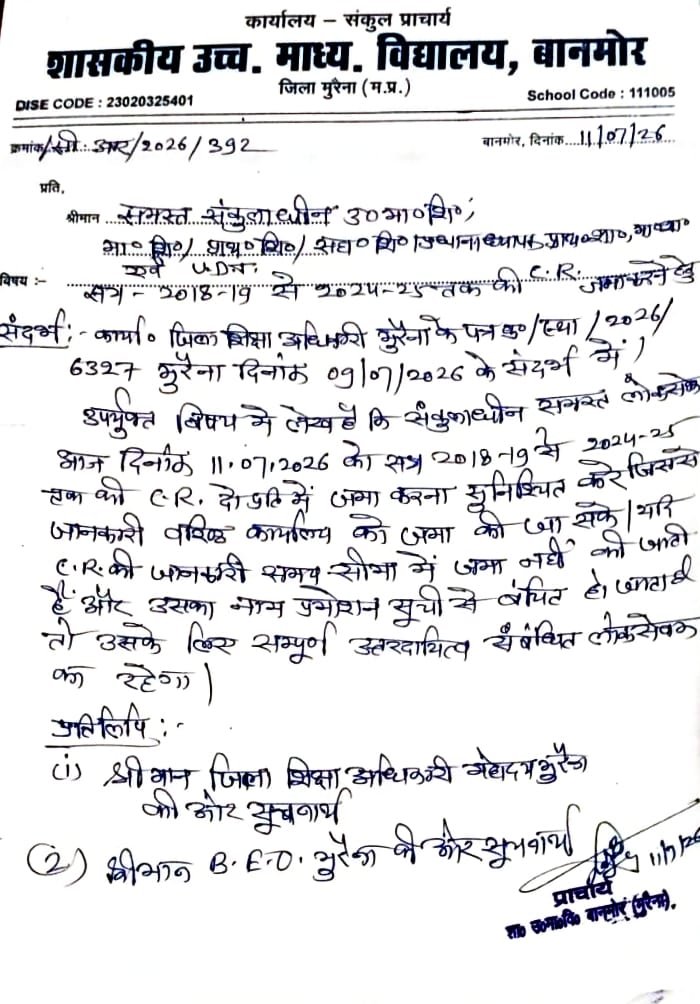 कार्यालय – संकुल प्राचार्य
शासकीय उच्च. माध्य. विद्यालय, बानमोर
जिला मुरैना (म.प्र.)
DISE CODE : 23020325401
School Code : 111005
क्रमांक/सी. आर/2026/392
बानमोर, दिनांक....11/07/26
प्रति,
श्रीमान समस्त संकुलाधीन उ०मा०शि०,
मा० शि०/ प्राथ० शि०/ सहा० शि० प्रधानाध्यापक प्राथ०शा०, मा०शा०
एवं U.D.T.
विषय :- सत्र - 2018-19 से 2024-25 तक की C.R. जमा करने हेतु
संदर्भ :- कार्या० जिला शिक्षा अधिकारी मुरैना के पत्र क्र०/स्था/2026/
6327 मुरैना दिनांक 09/07/2026 के संदर्भ में।
उपर्युक्त विषय में लेख है कि संकुलाधीन समस्त लोकसेवक
आज दिनांक 11.07.2026 को सत्र 2018-19 से 2024-25
तक की C.R. दो प्रति में जमा करना सुनिश्चित करे जिससे
जानकारी वरिष्ठ कार्यालय को जमा की जा सके। यदि
C.R. की जानकारी समय-सीमा में जमा नहीं की जाती
है और उसका नाम प्रमोशन सूची से वंचित हो जाता है
तो उसके लिए सम्पूर्ण उत्तरदायित्व संबंधित लोकसेवक
का रहेगा।
प्रतिलिपि :-
(1) श्रीमान जिला शिक्षा अधिकारी महोदय मुरैना
की ओर सूचनार्थ
(2) श्रीमान B.E.O. मुरैना की ओर सूचनार्थ
11/7/26
प्राचार्य
शा० उ०मा०वि० बानमोर (मुरैना).